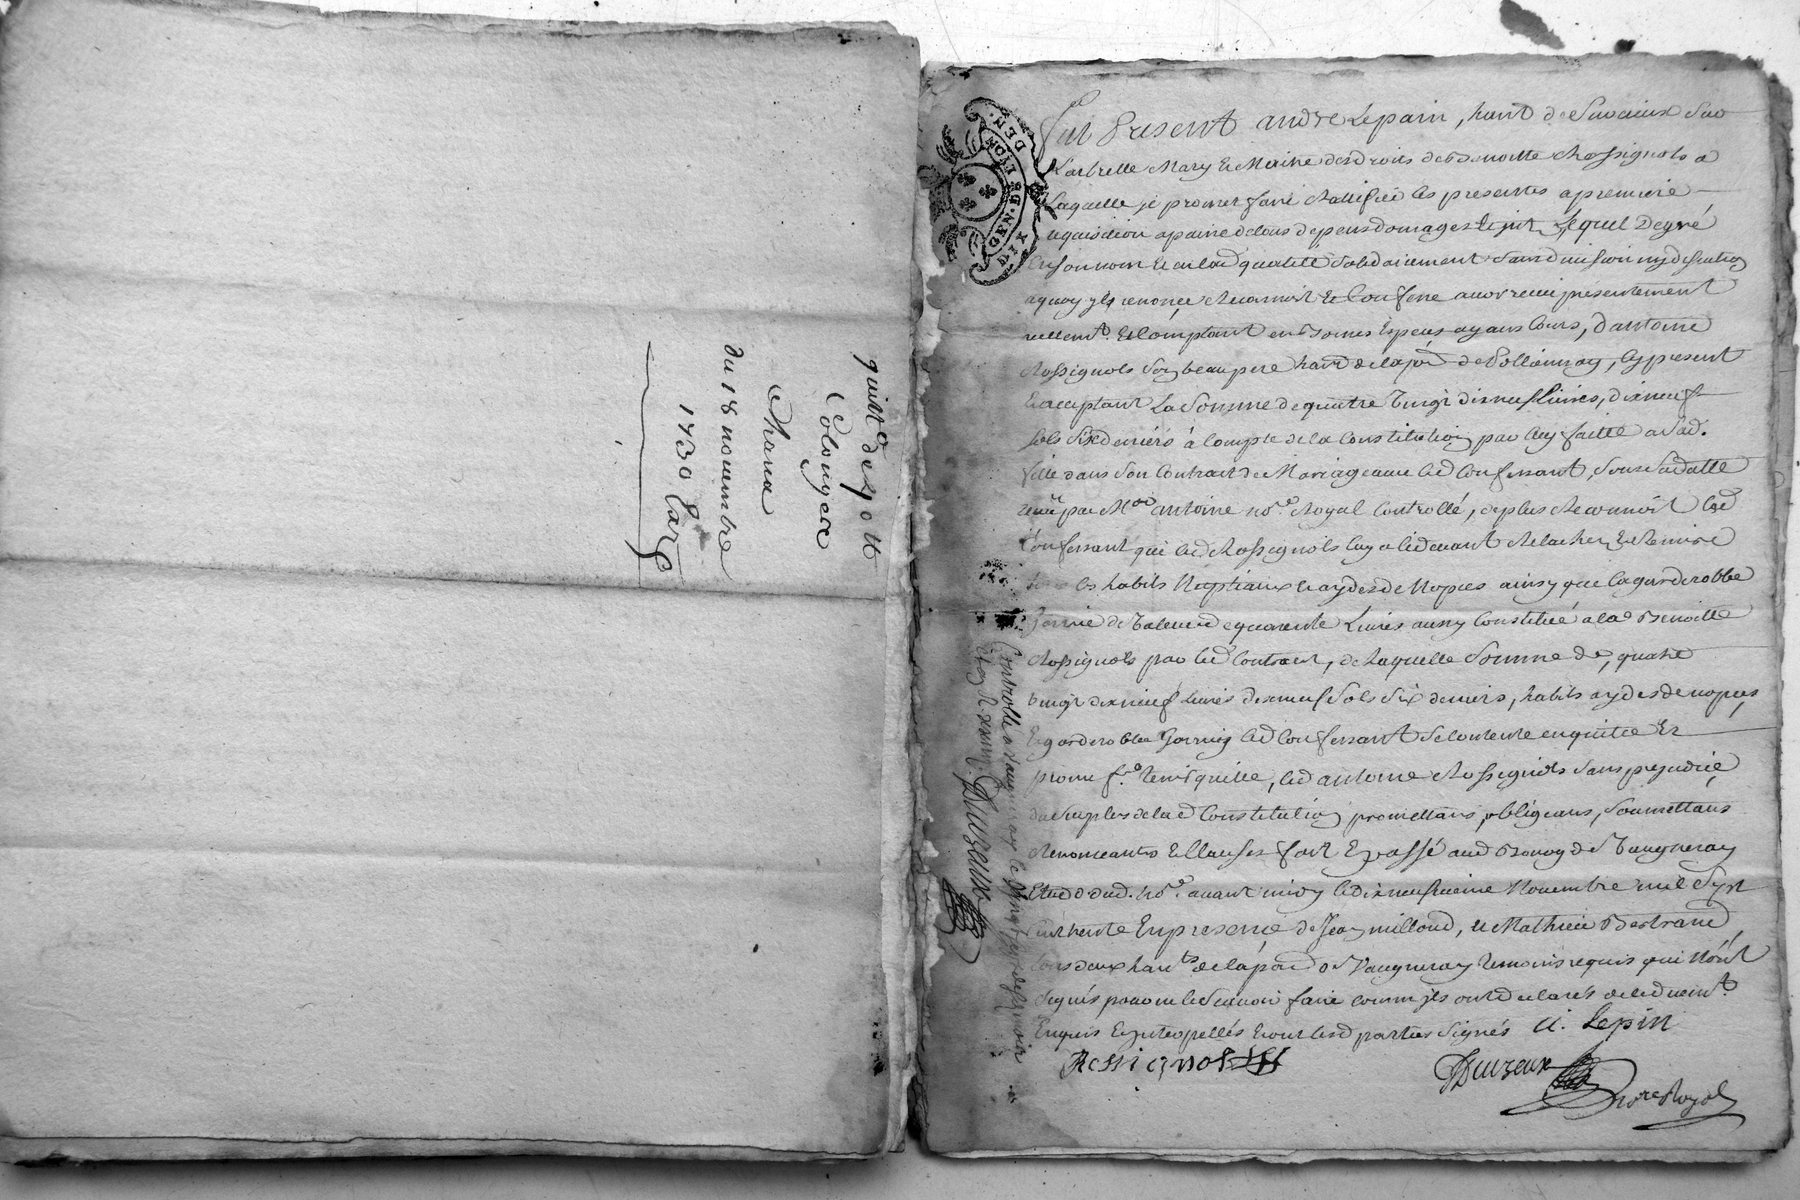 quitt. de 90 tt
Cologera
Charra
du 18 novembre
1730 Parg
GEN. DE LYON
DIX DEN.
Fut Present andre Lepain, hant de Savaux sur
Larbrelle Mary & Maitre des droits de Benoitte Rossignols a
Laquelle je promet faire Rattifiée les presentes a premiere
requisition a paine de tous depens domages & jnt, Lequel De gré
en son nom & en lad qualitté solidairement sans division ny discution
aquoy jl renonce, Reconnoit & Confesse avoir receu presentement
reellemt. & Comptant en bonnes Especes ayans Cours, d'antoine
Rossignols son beaupere hant de la par de Pollionnay, Cy present
& acceptant La Somme de quattre vingt dix neuf Livres, dix neuf
sols Six deniers à Compte de la Constitution par luy faitte a sad.
fille dans son Contract de Mariage avec led Confessant, sous sa datte
receu par Me antoine nore. Royal Controllé, de plus Reconnoit led
Confessant que led Rossignols luy a cidevant Relacher & Remise
tous les habits Nuptiaux & aydes de Nopces ainsy que la garderobbe
garnie de valleur de quarente Livres aussy Constituée a lad Benoitte
Rossignols par led Contract, de Laquelle Somme de, quatre
vingt dix neuf livres dix neuf sols Six deniers, habits aydes de nopces,
& garderobbe garnie led Confessant se contente en quitte Et
promet fre. tenir quitte, led antoine Rossignols sans prejudice
du surplus de lad Constitution promettans, obligeans, soumettans
Renonceants & Clauses fait & passé aud Bourg de Vaugneray
Etude dud. nore. avant midy le dix neufvieme Novembre mil Sept
cent trente En presence de Jean millond, & Mathieu Bertrand
tous deux hants de la par de Vaugneray temoins requis qui n'ont
signés pour ne le scavoir faire comm'jls ont declarés de ce deuemt.
Enquis & jnterpellés & ont lesd parties signés A. Lepin
Rossignol
Duzeux
nore Royal
Controllé a Vaugneray le vingt
Duzeux